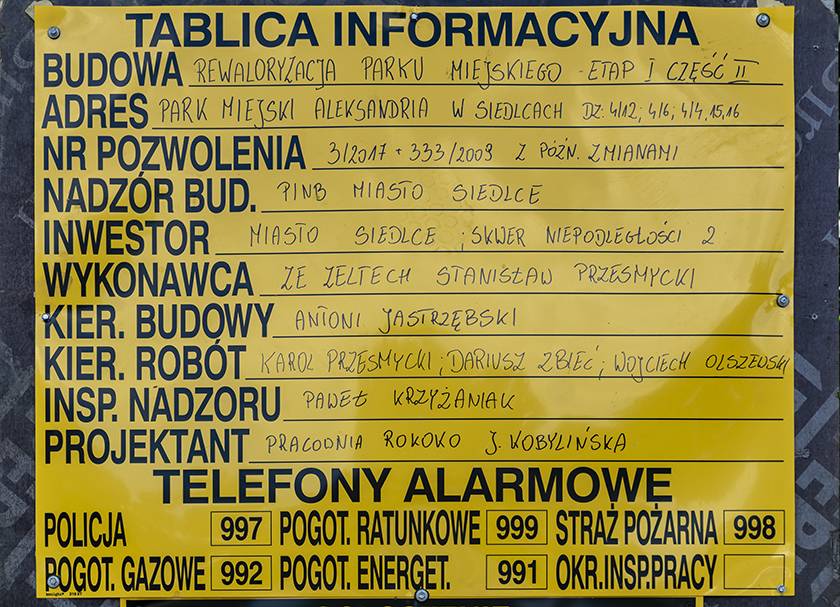 TABLICA INFORMACYJNA
BUDOWA REWALORYZACJA PARKU MIEJSKIEGO - ETAP I CZĘŚĆ II
ADRES PARK MIEJSKI ALEKSANDRIA W SIEDLCACH DZ: 4/12; 4/6; 4/4, 15, 16
NR POZWOLENIA 3/2017 + 333/2009 Z PÓŹN. ZMIANAMI
NADZÓR BUD. PINB MIASTO SIEDLCE
INWESTOR MIASTO SIEDLCE ; SKWER NIEPODLEGŁOŚCI 2
WYKONAWCA ZE ZELTECH STANISŁAW PRZESMYCKI
KIER. BUDOWY ANTONI JASTRZĘBSKI
KIER. ROBÓT KAROL PRZESMYCKI ; DARIUSZ ZBIEĆ ; WOJCIECH OLSZEWSKI
INSP. NADZORU PAWEŁ KRZYŻANIAK
PROJEKTANT PRACOWNIA ROKOKO J. KOBYLIŃSKA
TELEFONY ALARMOWE
POLICJA 997 POGOT. RATUNKOWE 999 STRAŻ POŻARNA 998
POGOT. GAZOWE 992 POGOT. ENERGET. 991 OKR.INSP.PRACY